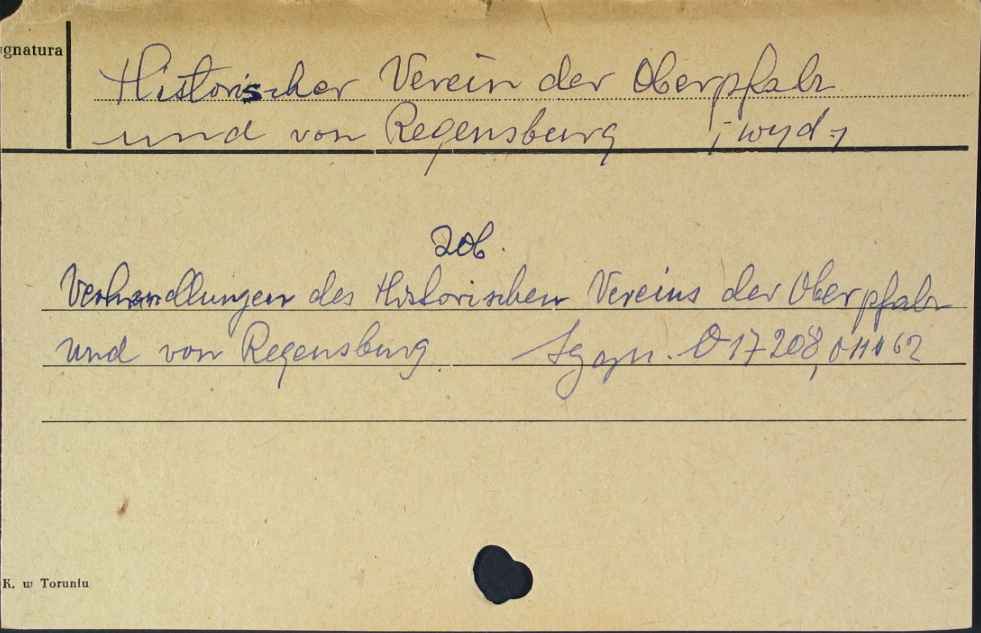 ygnatura
Historischer Verein der Oberpfalz
und von Regensburg [wyd.]
zob.
Verhandlungen des Historischen Vereins der Oberpfalz
und von Regensburg Sygn. O 17208, 011162
K. w Toruniu